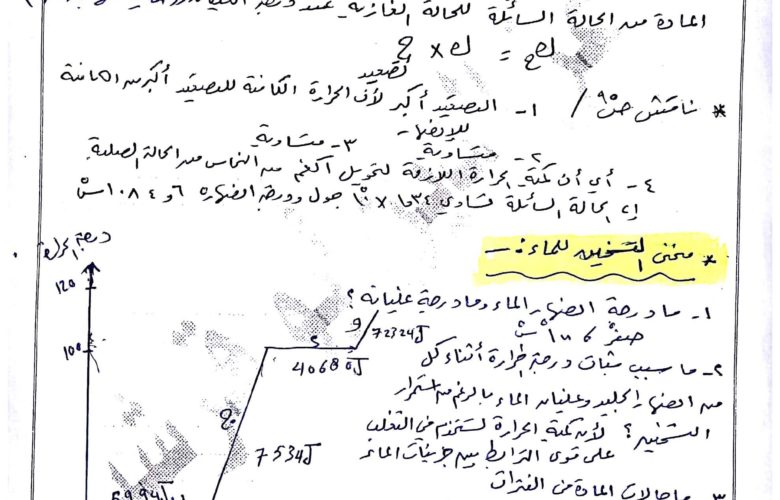 المادة من الحالة السائلة للحالة الغازية عند درجة
كص = ك × ح
تصعيد
* ناقش ص٩٠ / ١- التصعيد أكبر لأن الحرارة الكامنة للتصعيد أكبر من الكامنة
للإنصهار
٢- متساوية ٣- متساوية
٤- أي أن كمية الحرارة اللازمة لتحويل ١كغم من النحاس من الحالة الصلبة
إلى الحالة السائلة تساوي جول ودرجة انصهاره
* منحنى التسخين للماء :-
درجة الحرارة
120
١- ما درجة انصهار الماء وما درجة غليانه ؟
صفرْ س ، ١٠٠ْ س
و
72324J
100
د
40680J
٢- ما سبب ثبات درجة الحرارة أثناء كل
من انصهار الجليد وغليان الماء بالرغم من استمرار
التسخين ؟ لأن كمية الحرارة تستخدم في التغلب
على قوى الترابط بين جزيئات الماء
ج
7534J
٣- حالات المادة من الفترات